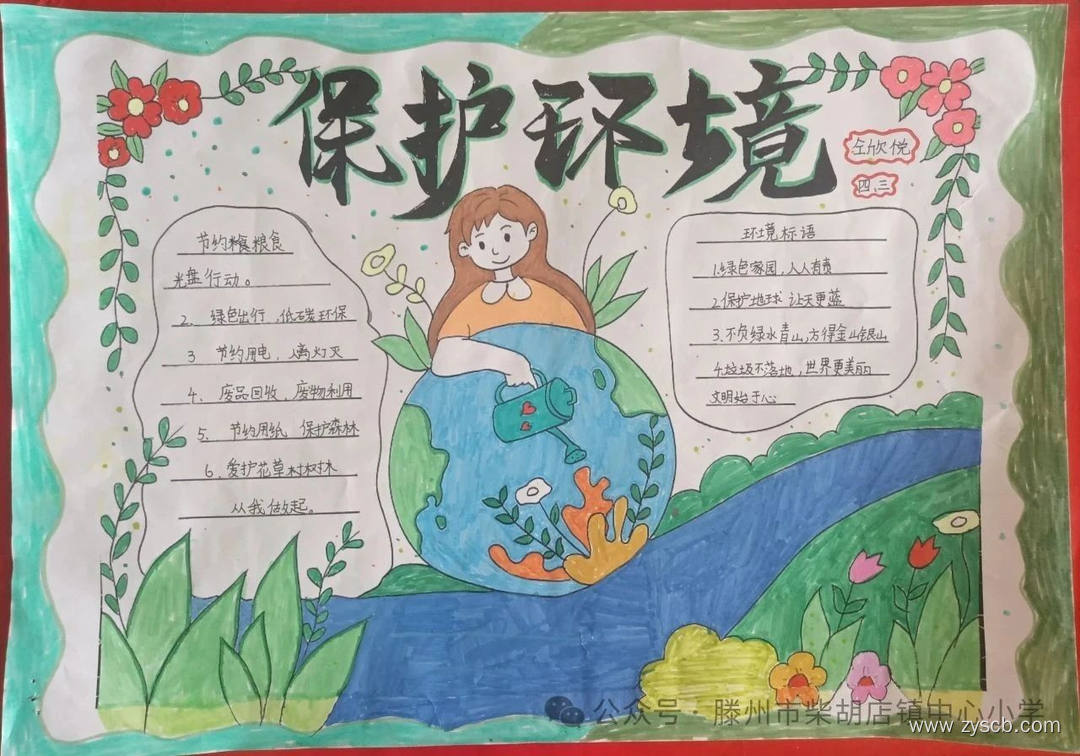 保护环境
仝欣悦
四.三
节约粮食粮食
光盘行动。
2. 绿色出行,低碳环保
3 节约用电,人离灯灭
4、废品回收、废物利用
5. 节约用纸 保护森林
6、爱护花草树木
从我做起。
环境标语
1.绿色家园,人人有责
2.保护地球 让天更蓝
3.不负绿水青山,方得金山银山
4.垃圾不落地,世界更美丽
文明始于心
公众号·滕州市柴胡店镇中心小学
www.zyscb.com